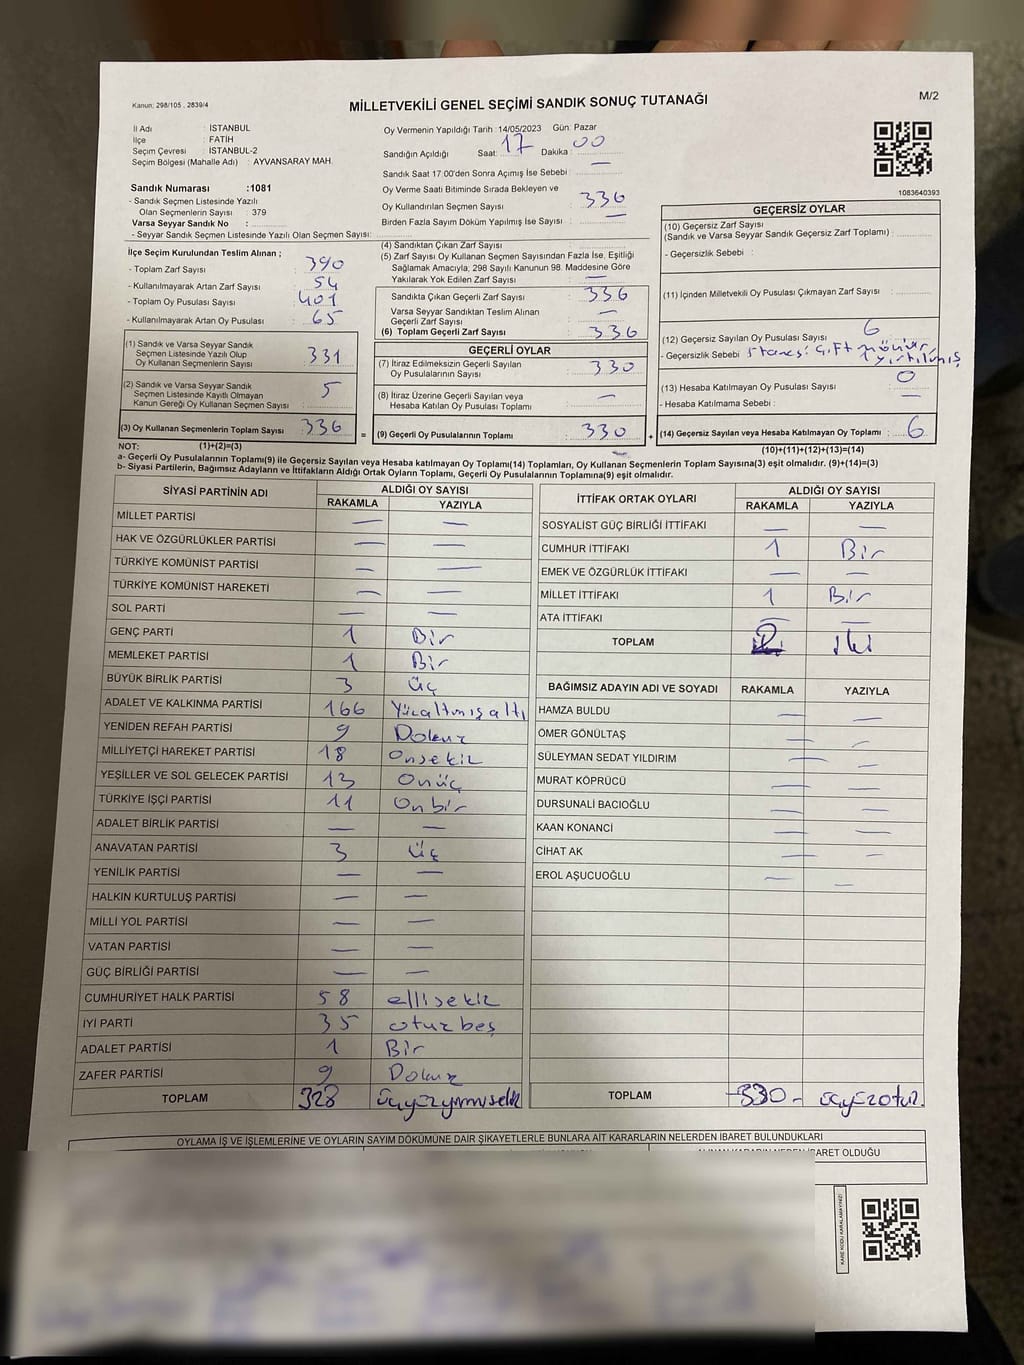 Kanun: 298/105 , 2839/4
MİLLETVEKİLİ GENEL SEÇİMİ SANDIK SONUÇ TUTANAĞI
M/2
İl Adı : İSTANBUL
İlçe : FATİH
Seçim Çevresi : İSTANBUL-2
Seçim Bölgesi (Mahalle Adı) : AYVANSARAY MAH.
Sandık Numarası :1081
- Sandık Seçmen Listesinde Yazılı
Olan Seçmenlerin Sayısı : 379
Varsa Seyyar Sandık No :
- Seyyar Sandık Seçmen Listesinde Yazılı Olan Seçmen Sayısı:
Oy Vermenin Yapıldığı Tarih :14/05/2023 Gün: Pazar
Sandığın Açıldığı Saat: 17 Dakika : 00
Sandık Saat 17:00'den Sonra Açımış İse Sebebi : —
Oy Verme Saati Bitiminde Sırada Bekleyen ve
Oy Kullandırılan Seçmen Sayısı : 336
Birden Fazla Sayım Döküm Yapılmış İse Sayısı : —
1083640393
İlçe Seçim Kurulundan Teslim Alınan ;
- Toplam Zarf Sayısı : 390
- Kullanılmayarak Artan Zarf Sayısı : 54
- Toplam Oy Pusulası Sayısı : 401
- Kullanılmayarak Artan Oy Pusulası : 65
(1) Sandık ve Varsa Seyyar Sandık
Seçmen Listesinde Yazılı Olup
Oy Kullanan Seçmenlerin Sayısı : 331
(2) Sandık ve Varsa Seyyar Sandık
Seçmen Listesinde Kayıtlı Olmayan
Kanun Gereği Oy Kullanan Seçmen Sayısı : 5
(3) Oy Kullanan Seçmenlerin Toplam Sayısı : 336
(4) Sandıktan Çıkan Zarf Sayısı :
(5) Zarf Sayısı Oy Kullanan Seçmen Sayısından Fazla İse, Eşitliği
Sağlamak Amacıyla, 298 Sayılı Kanunun 98. Maddesine Göre
Yakılarak Yok Edilen Zarf Sayısı : —
Sandıkta Çıkan Geçerli Zarf Sayısı : 336
Varsa Seyyar Sandıktan Teslim Alınan
Geçerli Zarf Sayısı : —
(6) Toplam Geçerli Zarf Sayısı : 336
GEÇERLİ OYLAR
(7) İtiraz Edilmeksizin Geçerli Sayılan
Oy Pusulalarının Sayısı : 330
(8) İtiraz Üzerine Geçerli Sayılan veya
Hesaba Katılan Oy Pusulası Toplamı : —
= (9) Geçerli Oy Pusulalarının Toplamı : 330 +
GEÇERSİZ OYLAR
(10) Geçersiz Zarf Sayısı
(Sandık ve Varsa Seyyar Sandık Geçersiz Zarf Toplamı) :
- Geçersizlik Sebebi :
(11) İçinden Milletvekili Oy Pusulası Çıkmayan Zarf Sayısı :
(12) Geçersiz Sayılan Oy Pusulası Sayısı : 6
- Geçersizlik Sebebi : 5 tanesi çift mühür, 1 yırtılmış
(13) Hesaba Katılmayan Oy Pusulası Sayısı : 0
- Hesaba Katılmama Sebebi : —
(14) Geçersiz Sayılan veya Hesaba Katılmayan Oy Toplamı : 6
NOT: (1)+(2)=(3)
(10)+(11)+(12)+(13)=(14)
a- Geçerli Oy Pusulalarının Toplamı(9) ile Geçersiz Sayılan veya Hesaba katılmayan Oy Toplamı(14) Toplamları, Oy Kullanan Seçmenlerin Toplam Sayısına(3) eşit olmalıdır. (9)+(14)=(3)
b- Siyasi Partilerin, Bağımsız Adayların ve İttifakların Aldığı Ortak Oyların Toplamı, Geçerli Oy Pusulalarının Toplamına(9) eşit olmalıdır.
SİYASİ PARTİNİN ADI ALDIĞI OY SAYISI
RAKAMLA YAZIYLA
MİLLET PARTİSİ — —
HAK VE ÖZGÜRLÜKLER PARTİSİ — —
TÜRKİYE KOMÜNİST PARTİSİ — —
TÜRKİYE KOMÜNİST HAREKETİ — —
SOL PARTİ — —
GENÇ PARTİ 1 Bir
MEMLEKET PARTİSİ 1 Bir
BÜYÜK BİRLİK PARTİSİ 3 üç
ADALET VE KALKINMA PARTİSİ 166 Yüzaltmışaltı
YENİDEN REFAH PARTİSİ 9 Dokuz
MİLLİYETÇİ HAREKET PARTİSİ 18 onsekiz
YEŞİLLER VE SOL GELECEK PARTİSİ 13 Onüç
TÜRKİYE İŞÇİ PARTİSİ 11 Onbir
ADALET BİRLİK PARTİSİ — —
ANAVATAN PARTİSİ 3 üç
YENİLİK PARTİSİ — —
HALKIN KURTULUŞ PARTİSİ — —
MİLLİ YOL PARTİSİ — —
VATAN PARTİSİ — —
GÜÇ BİRLİĞİ PARTİSİ — —
CUMHURİYET HALK PARTİSİ 58 ellisekiz
İYİ PARTİ 35 otuzbeş
ADALET PARTİSİ 1 Bir
ZAFER PARTİSİ 9 Dokuz
TOPLAM 328 üçyüzyirmisekiz
İTTİFAK ORTAK OYLARI ALDIĞI OY SAYISI
RAKAMLA YAZIYLA
SOSYALİST GÜÇ BİRLİĞİ İTTİFAKI — —
CUMHUR İTTİFAKI 1 Bir
EMEK VE ÖZGÜRLÜK İTTİFAKI — —
MİLLET İTTİFAKI 1 Bir
ATA İTTİFAKI — —
TOPLAM 2 iki
BAĞIMSIZ ADAYIN ADI VE SOYADI RAKAMLA YAZIYLA
HAMZA BULDU — —
ÖMER GÖNÜLTAŞ — —
SÜLEYMAN SEDAT YILDIRIM — —
MURAT KÖPRÜCÜ — —
DURSUNALİ BACIOĞLU — —
KAAN KONANCİ — —
CİHAT AK — —
EROL AŞUCUOĞLU — —
TOPLAM -330- üçyüzotuz.
OYLAMA İŞ VE İŞLEMLERİNE VE OYLARIN SAYIM DÖKÜMÜNE DAİR ŞİKAYETLERLE BUNLARA AİT KARARLARIN NELERDEN İBARET BULUNDUKLARI
İBARET OLDUĞU
KARE KODU KARALAMAYINIZ!